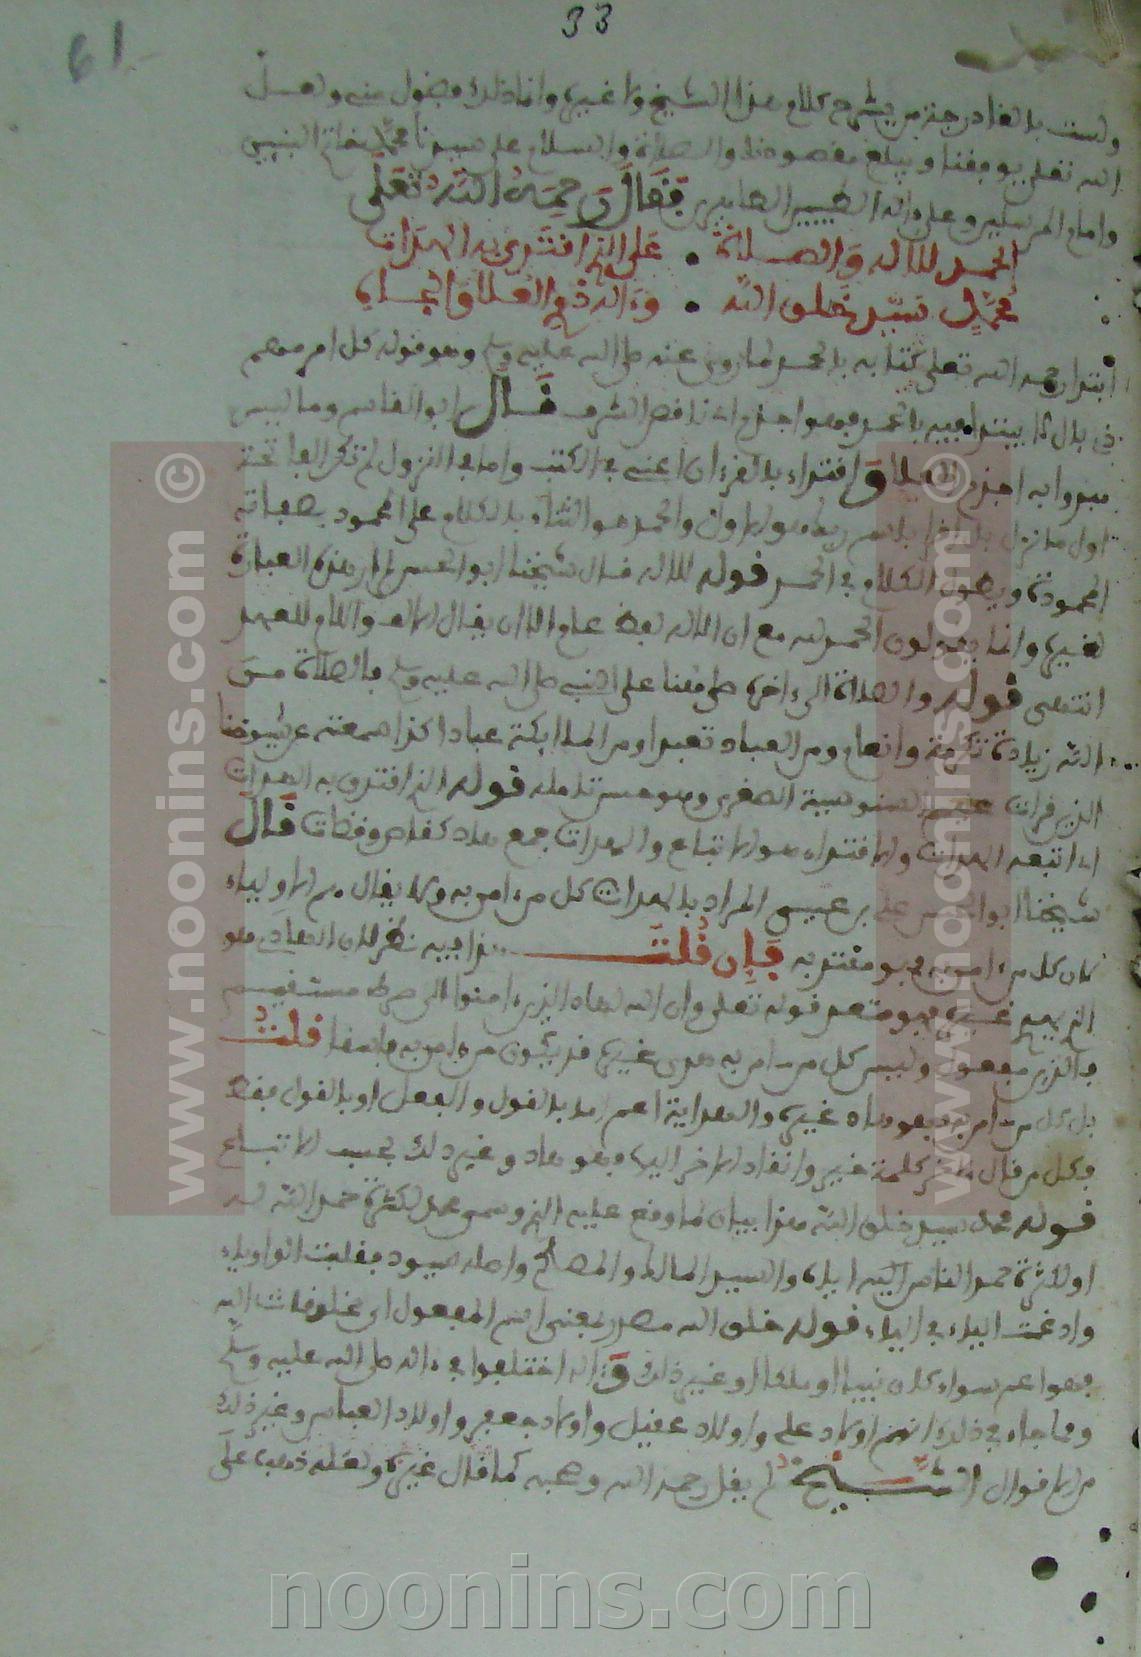 33
61
ولست بالغا درجة من يشرح كلام هذا الشيخ ولا غيره وانما ذلك فضول مني ولعل
الله تعلى يوفقنا ويبلغ مقصودنا والصلاة والسلام على سيدنا محمد خاتم النبيين
وامام المرسلين وعلى ءاله الطيبين الطاهرين فقال رحمه الله تعلى
الحمد للاله والصلاة . على الذي اقتدى به الهداة
محمد سيد خلق الله . وءاله ذوي العلا والجاه
ابتدا رحمه الله تعلى كتابه بالحمد لما روي عنه صلى الله عليه وسلم وهو قوله كل امر مهم
ذي بال لا يبتدا فيه بالحمد فهو اجذم اي ناقص الشرف قال ابو القاسم وما ليس
مبدوا به اجذم العلا واقتداء بالقرءان اعني في الكتب واما في النزول لم تكن الفاتحة
اول ما نزل بل اقرا باسم ربك هو الاول والحمد هو الثناء بالكلام على المحمود بصفاته
المحمودة ويطول الكلام في الحمد قوله للاله قال شيخنا ابو الحسن لم ار هذه العبارة
لغيره وانما يقولون الحمد لله مع ان الاله لفظ عام الا ان يقال الالف واللام للعهد
انتهى قوله والصلاة الى ءاخره صلى معنا على النبي صلى الله عليه وسلم فالصلاة من
الله زيادة تكرمة وانعام ومن العباد تعبد ومن الملائكة عبادة كذا سمعته عن شيوخنا
الذين قرات عليهم السنوسية الصغرى وهو حسن تامله قوله الذي اقتدى به الهداة
اي اتبعه الهداة والاقتداء هو الاتباع والهداة جمع هاد كقاض وقضاة قال
شيخنا ابو الحسن علي بن عيسى المراد بالهداة كل من ءامن به ولا يقال هم الاولياء
لان كل من ءامن به فهو مقتد به فإن قلت هذا فيه نظر لان الهادي هو
الذي يهدي غيره فهو متعد قوله تعلى وان الله لهاد الذين ءامنوا الى صراط مستقيم
فالذين مفعول وليس كل من ءامن به هدى غيره قد يكون من ءامن به فاسقا قلت
بل كل من ءامن به فهو هاد غيره والهداية اعم اما بالقول والفعل او بالقول فقط
فكل من قال لاخر كلمة خير وانقاد الاخر اليه فهو هاد وغير ذلك بحسب الاتباع
قوله محمد سيد خلق الله هذا بيان لما وقع عليه الذي وسمي محمد لكثرة حمد الله له
او لكثرة حمد الناس اليه اياه والسيد المالك والمصلح واصله سيود فقلبت الواو ياء
وادغمت الياء في الياء قوله خلق الله مصدر بمعنى اسم المفعول اي مخلوقات الله
فهو اعم سواء كان نبيا او ملكا او غير ذلك وءاله اختلفوا في ءاله صلى الله عليه وسلم
ومما جاء في ذلك انهم اولاد علي واولاد عقيل واولاد جعفر واولاد العباس وغير ذلك
من الاقوال الشيخ لم يقل رحمه الله وصحبه كما قال غيره ولعله ذهب على
www.noonins.com ©
www.noonins.com ©
noonins.com